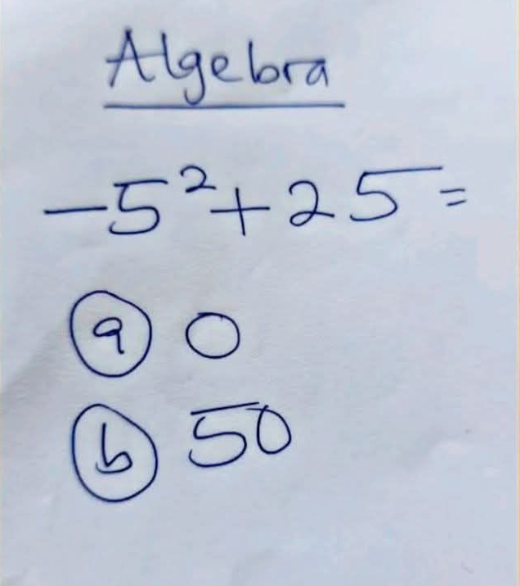 Algebra
-5²+25=
a 0
b 50